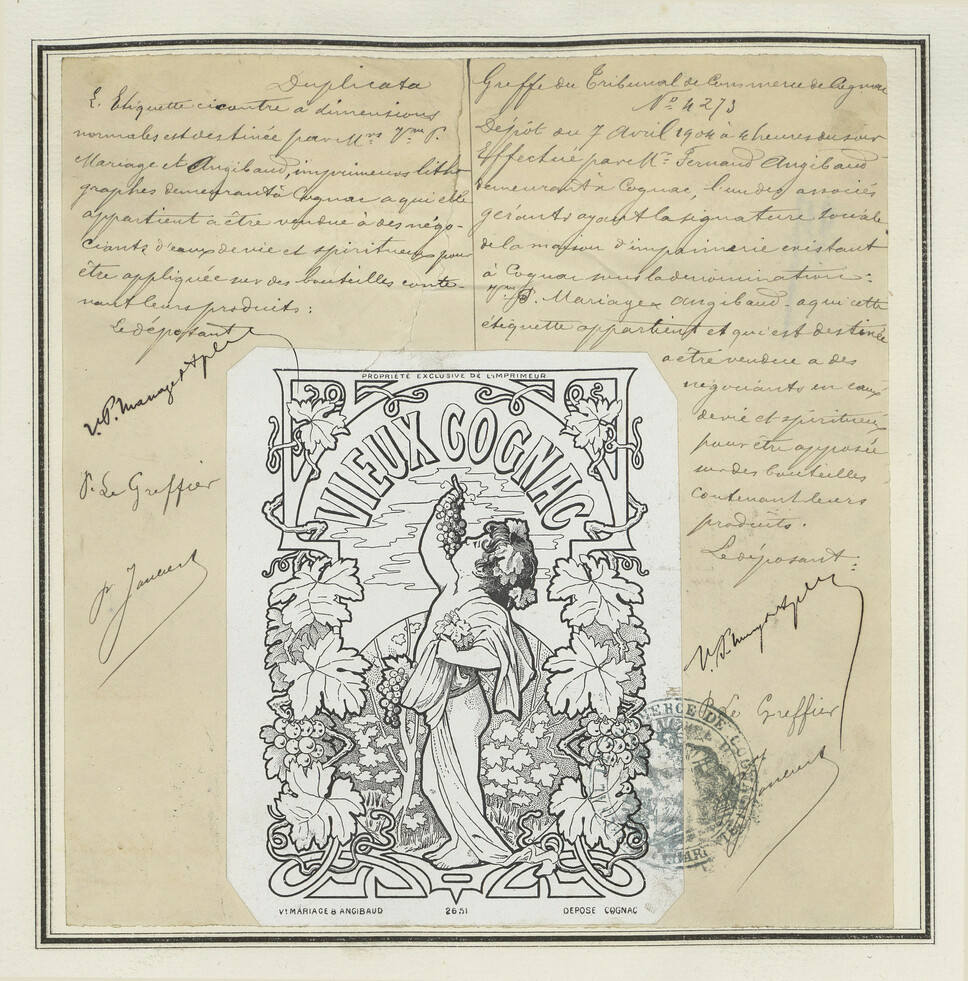 Duplicata
L'Etiquette ci contre à dimensions
normales est destinée par Mrs Vve P.
Mariage et Angibaud, imprimeurs litho-
graphes demeurant à Cognac a qui elle
appartient à être vendue à des négo-
ciants d'eaux de vie et spiritueux pour
être appliquée sur des bouteilles conte-
nant leurs produits:
Le déposant
V. P. Mariage & Angibaud
P. Le Greffier
Greffe du Tribunal de Commerce de Cognac
No 4273
Dépôt du 7 Avril 1904 à 4 heures du soir
Effectué par Mr Fernand Angibaud
demeurant à Cognac, l'un des associés
gérants ayant la signature sociale
de la maison d'imprimerie existant
à Cognac sous la dénomination:
Vve P. Mariage & Angibaud a qui cette
étiquette appartient et qui est destinée
a être vendue a des
négociants en eaux
de vie et spiritueux
pour être apposée
sur des bouteilles
contenant leurs
produits.
Le déposant:
V. P. Mariage & Angibaud
P. Le Greffier
PROPRIÉTÉ EXCLUSIVE DE L'IMPRIMEUR
VIEUX COGNAC
Ve MARIAGE & ANGIBAUD 2651 DEPOSE COGNAC